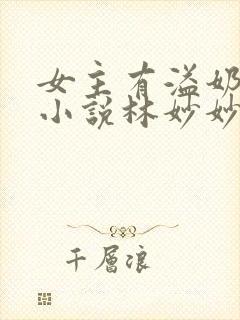 女主有溢奶
小说林妙妙
千层浪